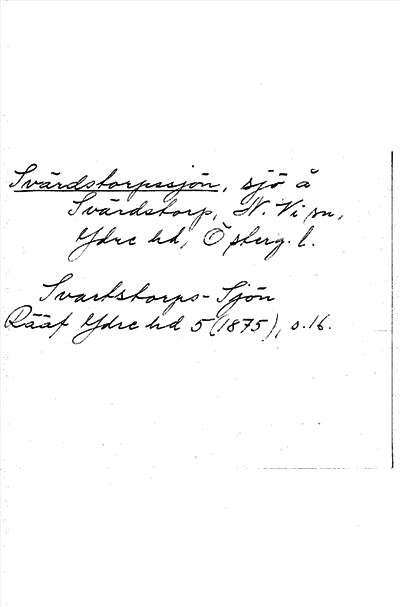 Svärdstorpssjön, sjö å
Svärdstorp, N. Vi sn,
Ydre hd, Österg. l.
Svartstorps-Sjön
Rääf Ydre hd 5 (1875), s. 16.